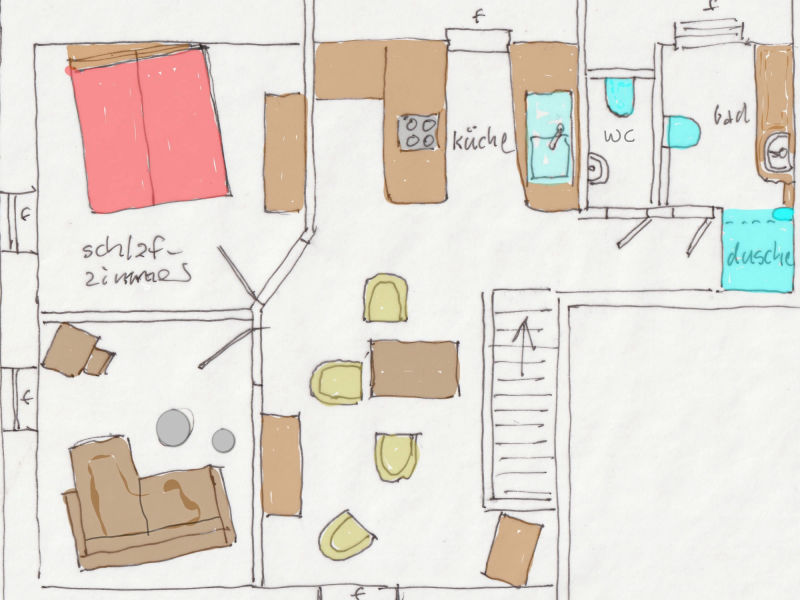 f
f
küche
wc
bad
f
schlaf-
zimmer
dusche
f
f